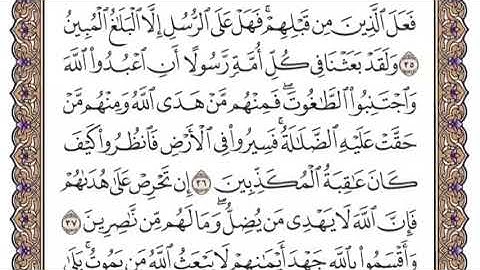 فَعَلَ ٱلَّذِينَ مِن قَبۡلِهِمۡۚ فَهَلۡ عَلَى ٱلرُّسُلِ إِلَّا ٱلۡبَلَٰغُ ٱلۡمُبِينُ
٣٥ وَلَقَدۡ بَعَثۡنَا فِي كُلِّ أُمَّةٖ رَّسُولًا أَنِ ٱعۡبُدُواْ ٱللَّهَ
وَٱجۡتَنِبُواْ ٱلطَّٰغُوتَۖ فَمِنۡهُم مَّنۡ هَدَى ٱللَّهُ وَمِنۡهُم مَّنۡ
حَقَّتۡ عَلَيۡهِ ٱلضَّلَٰلَةُۚ فَسِيرُواْ فِي ٱلۡأَرۡضِ فَٱنظُرُواْ كَيۡفَ
كَانَ عَٰقِبَةُ ٱلۡمُكَذِّبِينَ ٣٦ إِن تَحۡرِصۡ عَلَىٰ هُدَىٰهُمۡ
فَإِنَّ ٱللَّهَ لَا يَهۡدِي مَن يُضِلُّۖ وَمَا لَهُم مِّن نَّٰصِرِينَ ٣٧
وَأَقۡسَمُواْ بِٱللَّهِ جَهۡدَ أَيۡمَٰنِهِمۡ لَا يَبۡعَثُ ٱللَّهُ مَن يَمُوتُۚ بَلَىٰ